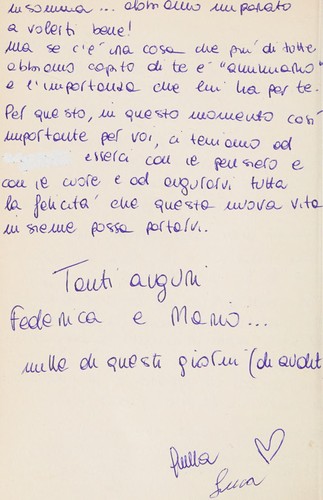 insomma... abbiamo imparato
a volerti bene!
Ma se c'è una cosa che più di tutte
abbiamo capito di te è "
e l'importanza che lui ha per te.
Per questo, in questo momento così
importante per voi, ci teniamo ad
esserci con le pensiero e
con le cuore e ad augurarvi tutta
la felicità che questa nuova vita
insieme possa portarvi.
Tanti auguri
Federica e Mario...
mille di questi giorni (di
Giulia
Luca